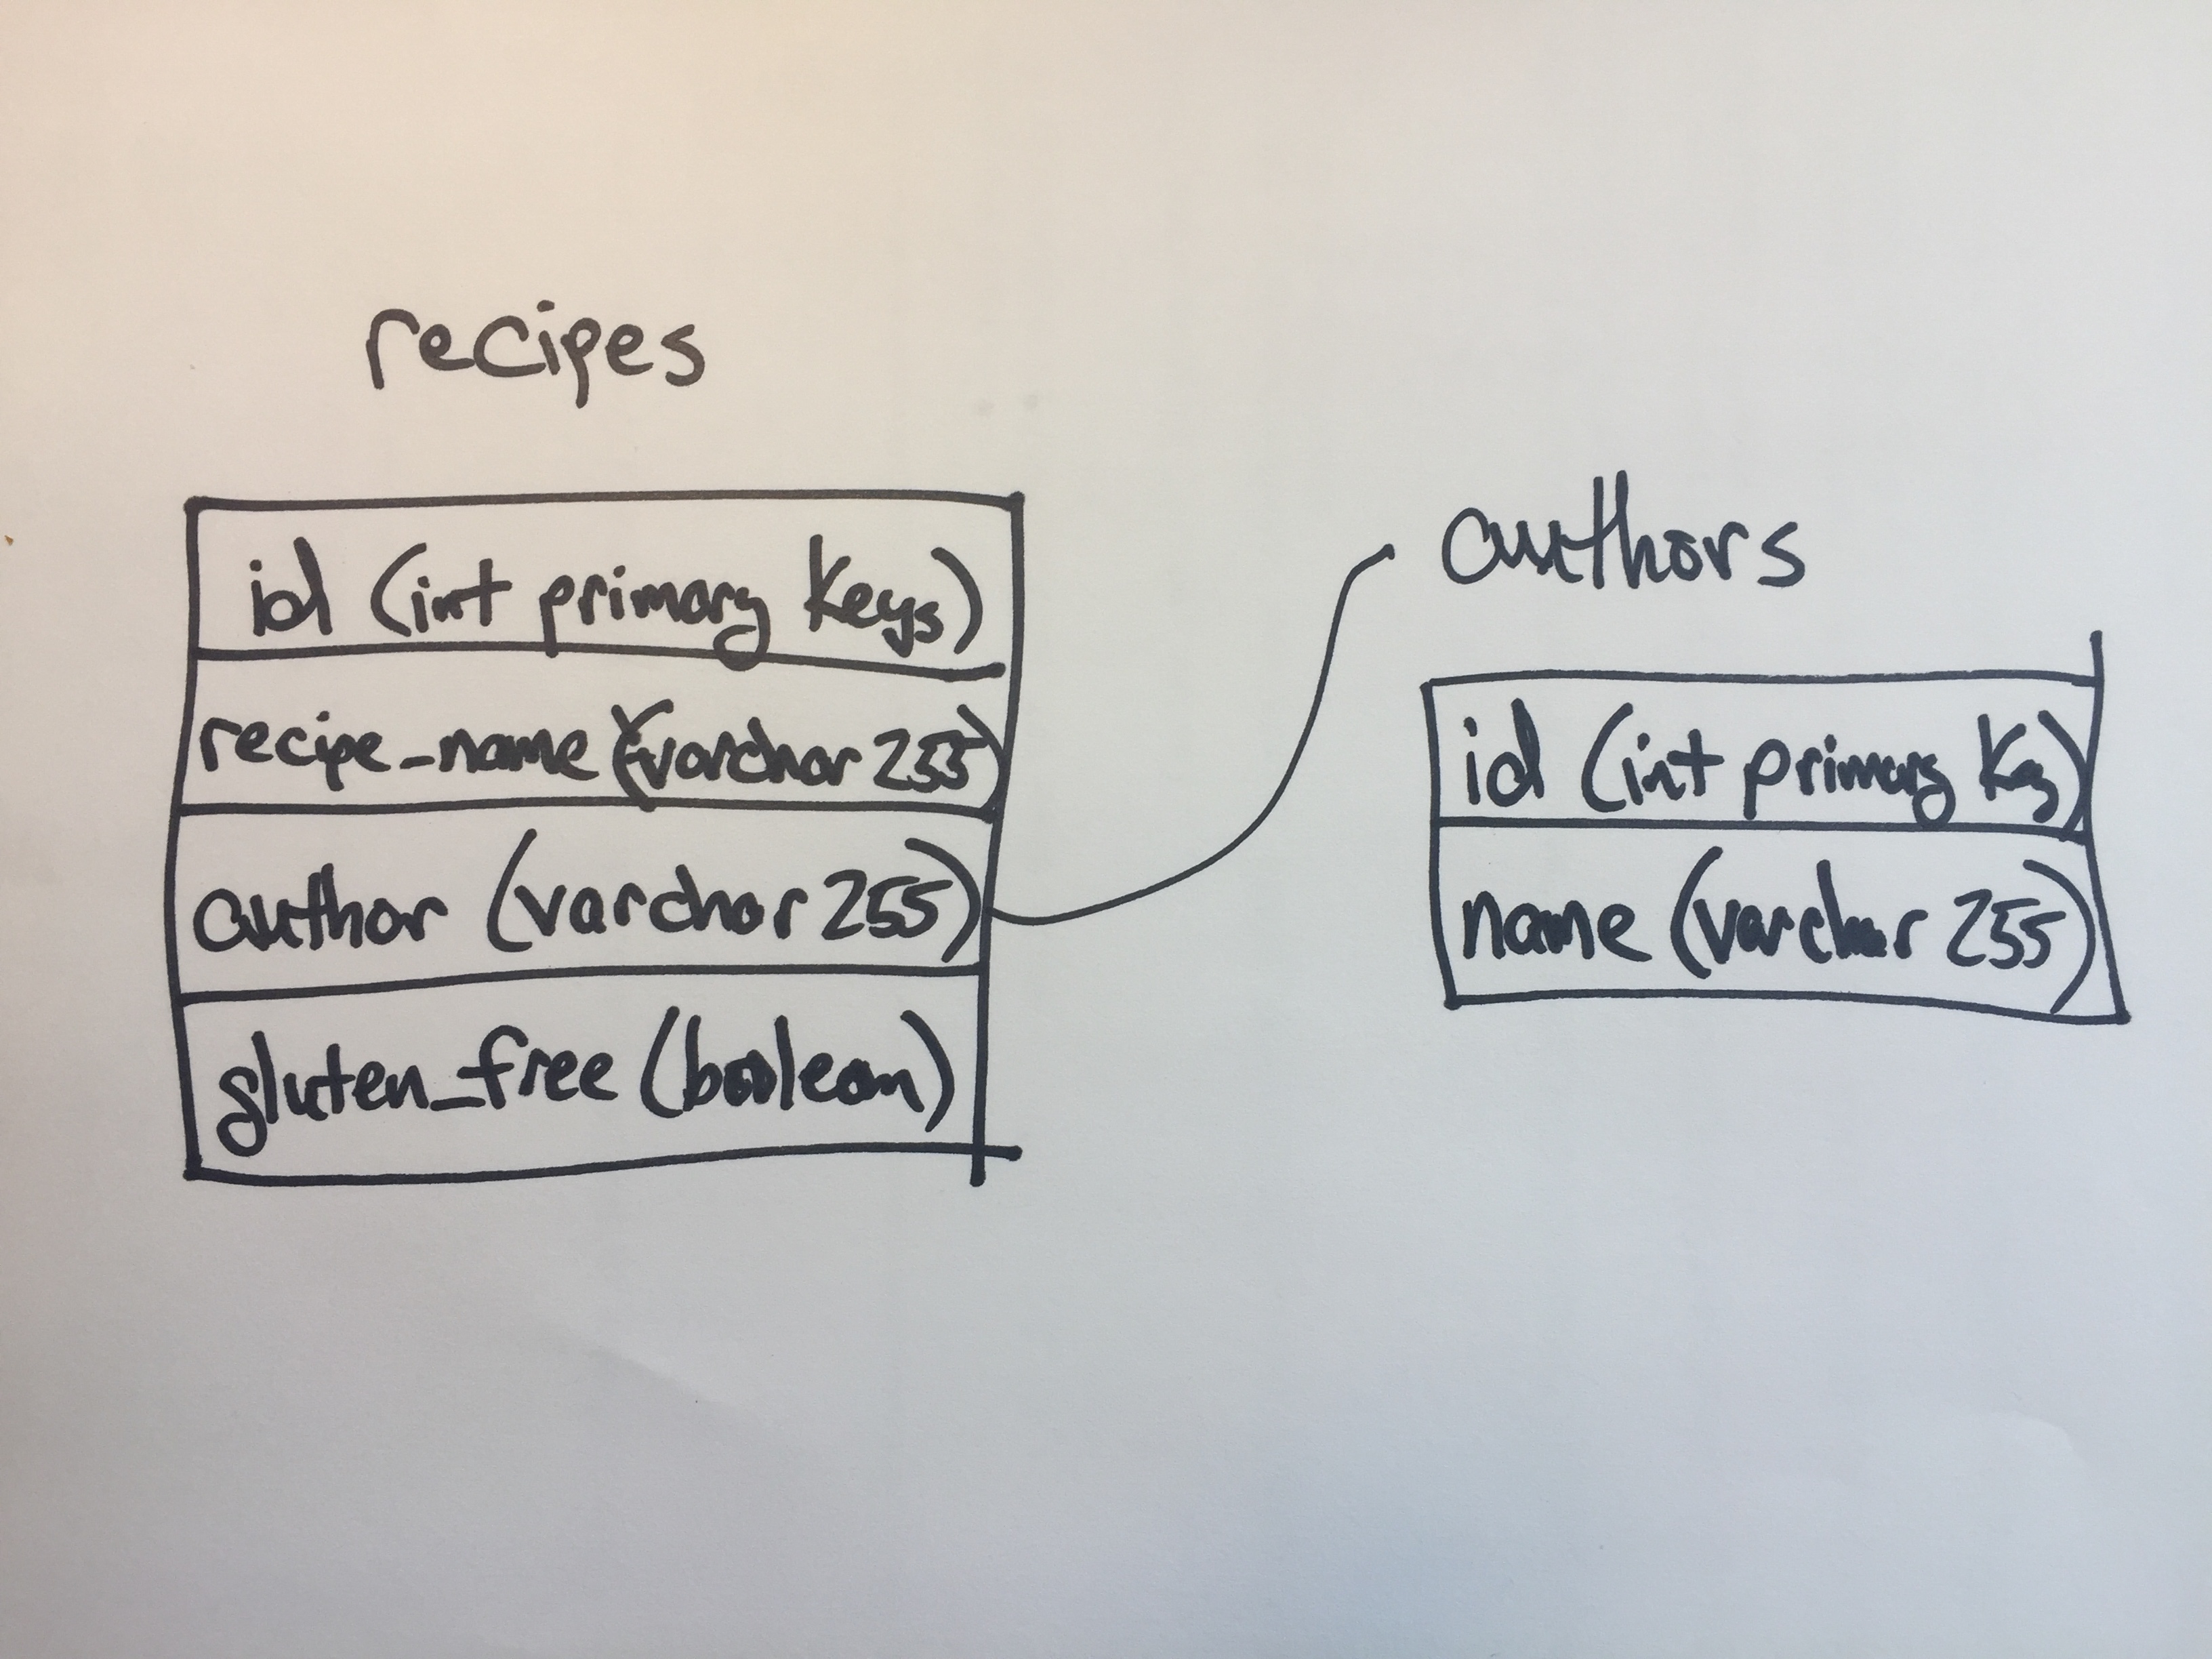 recipes
id (int primary keys)
recipe_name (varchar 255)
author (varchar 255)
gluten_free (boolean)
authors
id (int primary key)
name (varchar 255)